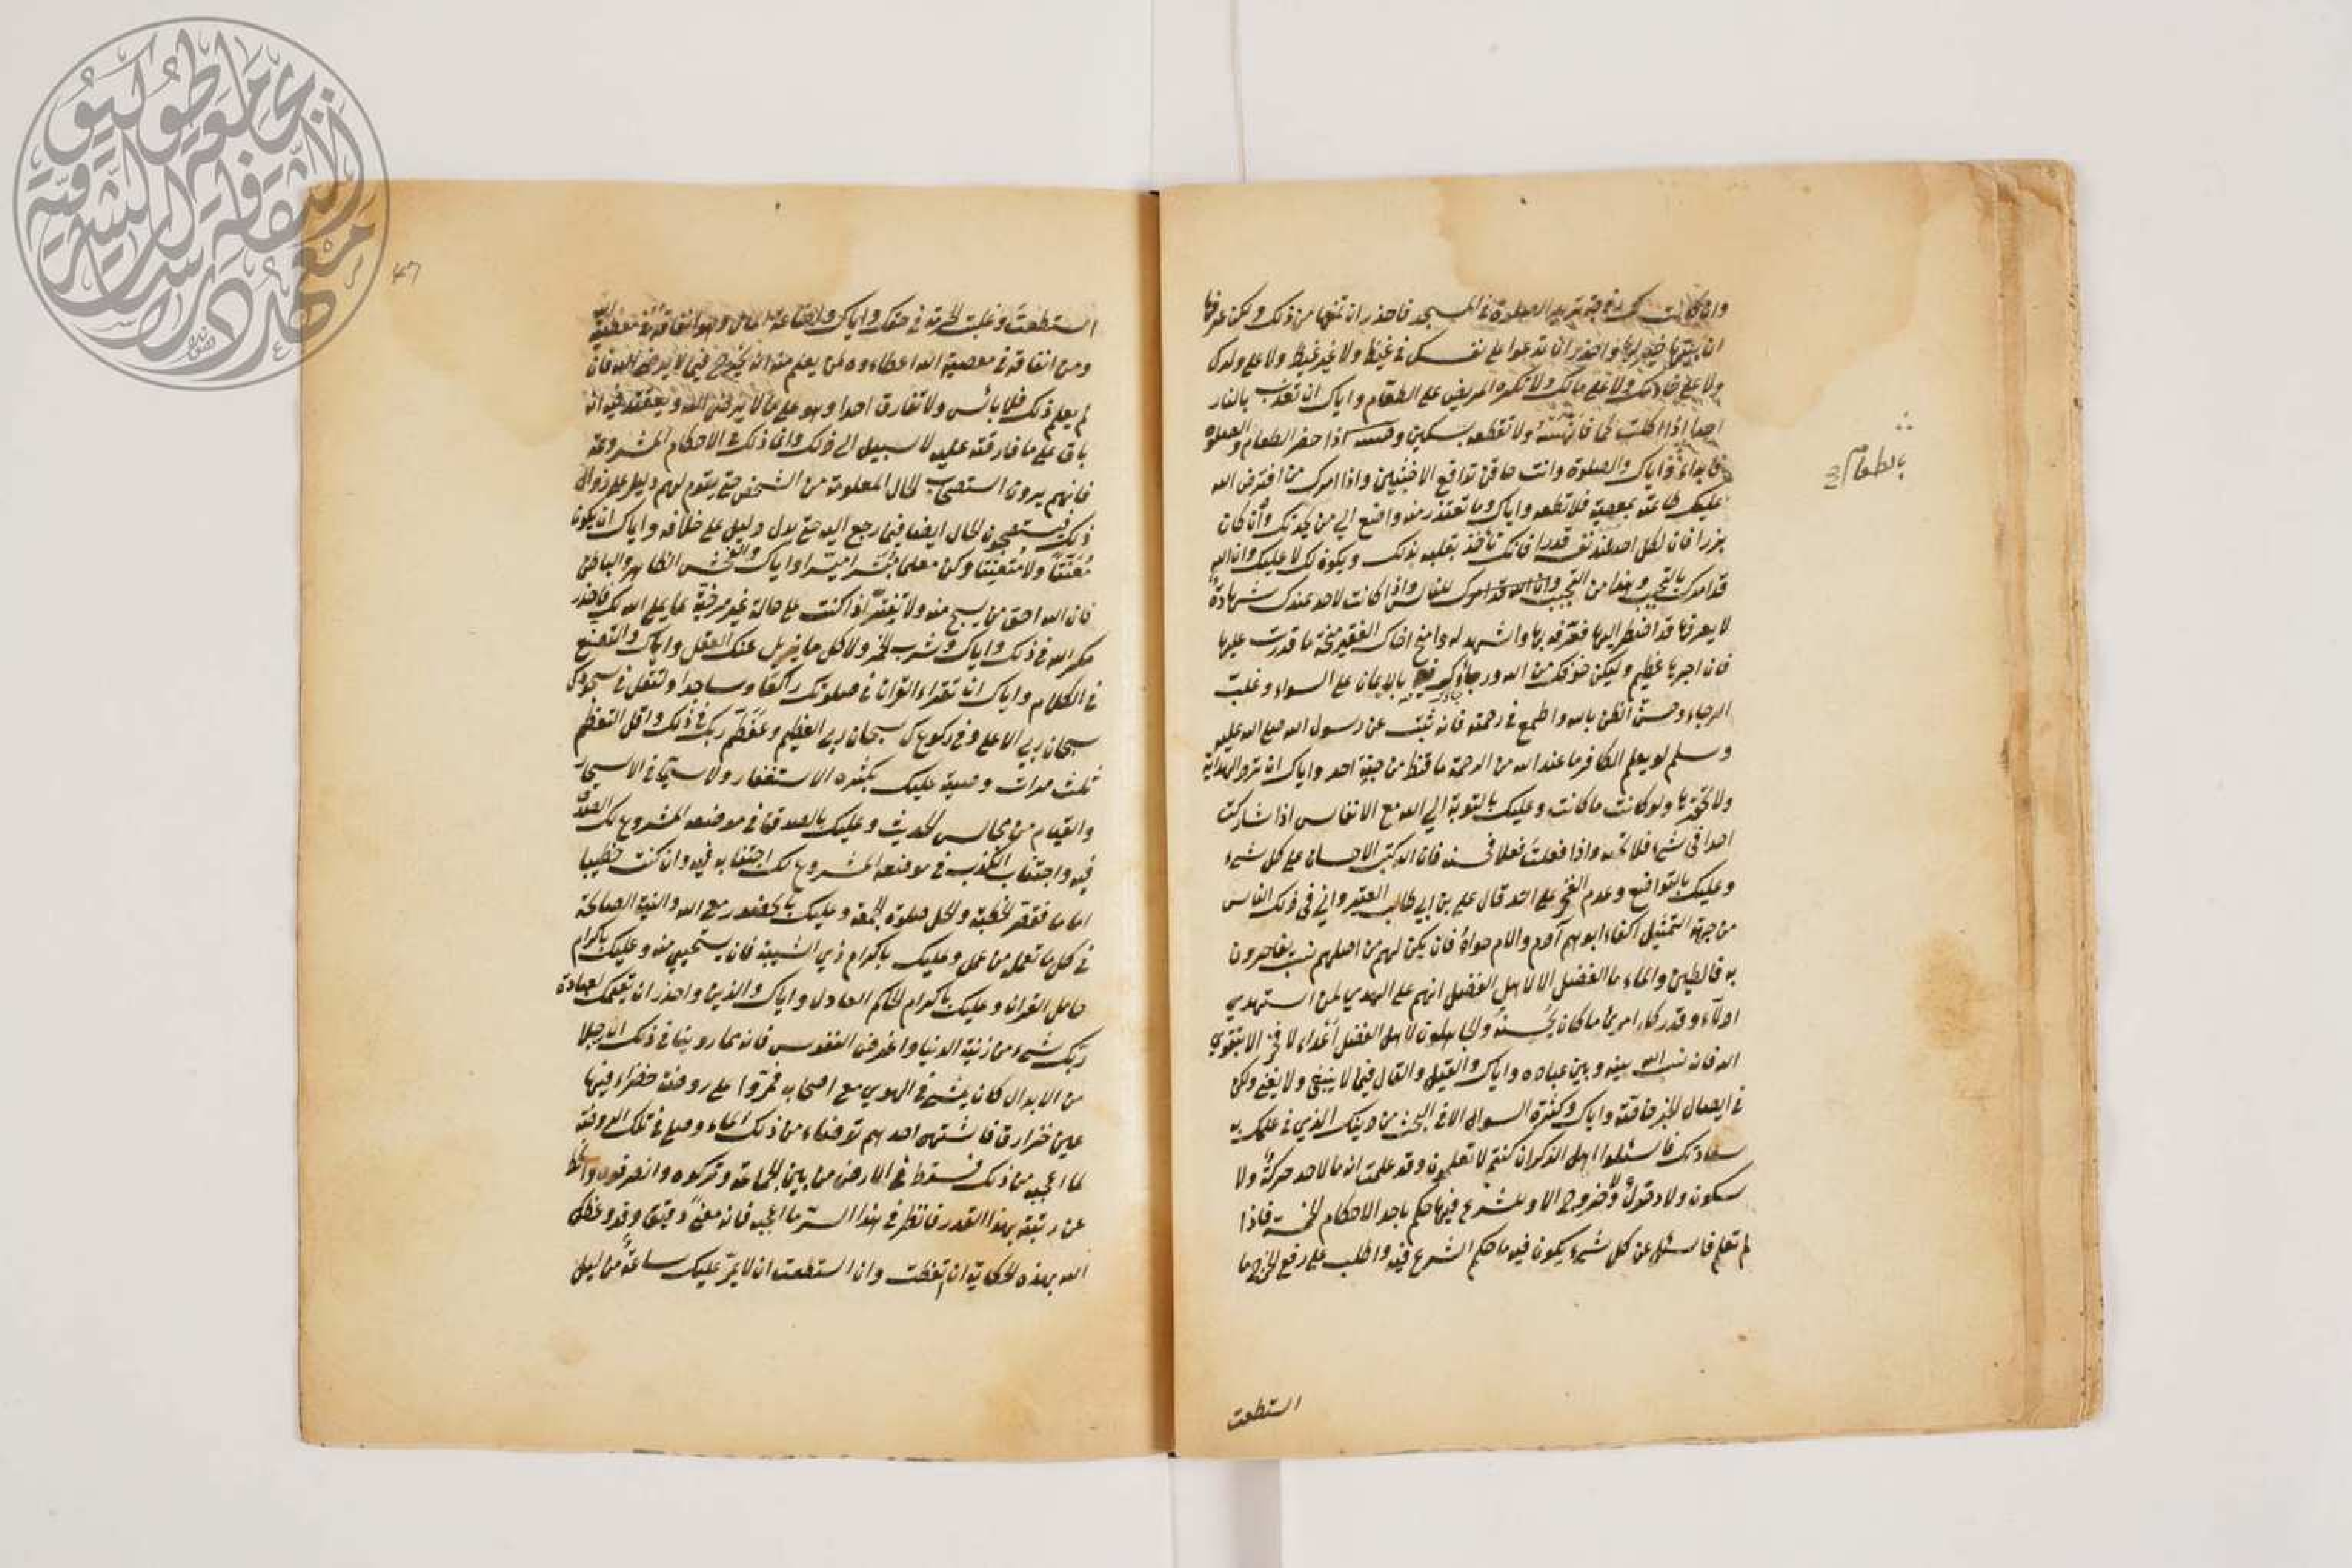 وان كانت لك زوجة تريد الصلوة في المسجد فاحذر ان تمنعها من ذلك ولكن عرفها
ان بيتها خير لها واحذر ان تدعوا على نفسك في غيظ ولا غير غيظ ولا على ولدك
ولا على خادمك ولا على مالك ولا تكره المريض على الطعام واياك ان تعذب بالنار
احدا اذا اكلت لحما فانهسه ولا تقطعه بسكين اذا حضر الطعام والصلوة
فابداء واياك والصلوة وانت حاقن تدافع الاخبثين واذا امرك من افترض الله
عليك طاعته بمعصية فلا تطعه واياك وما تعتذر منه واضع الى من يحدثك وان كان
نزرا فان لكل احد عند نفسه قدرا فانك تأخذ بقلبه بذلك ويكون لك لا عليك وان الله
قد امرك بالتحبب وهذا من التحبب واذا كانت لاحد عندك شهادة
لا يعرفها قد اضطر اليها فعرفه بها واشهد له وامنح اخاك الفقير منحة ما قدرت عليها
فان اجرها عظيم وليكن خوفك من الله ورجاؤك بالايمان على السواء وغلب
الرجاء وحسن الظن بالله واطمع في رحمته فانه ثبت عن رسول الله صلى الله عليه
وسلم لو يعلم الكافر ما عند الله من الرحمة ما قنط من جنته احد واياك ان ترد الهداية
ولا تحقرها ولو كانت ما كانت وعليك بالتوبة الى الله مع الانفاس اذا شاركت
احدا في شيء فلا تخنه واذا فعلت فعلا فحسنه فان الله كتب الاحسان على كل شيء
وعليك بالتواضع وعدم الفخر على احد قال علي بن ابي طالب القيرواني في ذلك الناس
من جهة التمثيل اكفاء ابوهم آدم والام حواء فان يكن لهم من اصلهم نسب يفاخرون
به فالطين والماء ما الفضل الا لاهل الفضل انهم على الهدى لمن استهدى
ادلاء وقدر كل امرئ ما كان يحسنه والجاهلون لاهل الفضل اعداء لا فخر الا بتقوى
الله فانه نسب الله بينه وبين عباده واياك والقيل والقال فيما لا ينبغي ولا يعني ولكن
في ايصال الخير خاصة واياك وكثرة السوال الا في البحث عن دينك الذي في علمك به
سعادتك فاسئلوا اهل الذكر ان كنتم لا تعلمون وقد علمت انه ما لاحد حركة ولا
سكون ولا دخول ولا خروج الا وللشرع فيها حكم باحد الاحكام الخمسة فاذا
لم تعلم فاسئل عن كل شيء يكون فيه ما حكم الشرع فيه واطلب على رفع الحرج ما
بالطعام صح
استطعت
47
استطعت وغلب الحرمة في حقك واياك واضاعة المال وهو انفاقه في معصية الله
ومن انفاقه في معصية الله اعطاءوه لمن يعلم منه انه يخرجه فيما لا يرضي الله فان
لم يعلم ذلك فلا بائس ولا تفارق احدا وهو على ما لا يرضي الله وتعتقد فيه انه
باق على ما فارقته عليه لا سبيل الى ذلك وانما ذلك في الاحكام المشروعة
فانهم يرون استصحاب الحال المعلومة من الشخص حتى يقوم لهم دليل على زوال
ذلك فيستصحبون الحال ايضا فيما رجع اليه حتى يدل دليل على خلافه واياك ان يكون
معنتا ولا متعنتا وكن معلما مبشرا ميسرا واياك والفحش الظاهر والباطن
فان الله احق من يستحيى منه ولا تغتر اذا كنت على حالة غير مرضية بما يملي الله لك فاحذر
مكر الله في ذلك واياك وشرب الخمر ولا كل ما يزيل عنك العقل واياك والتصنع
في الكلام واياك ان تقراء القران في صلوتك راكعا وساجدا ولتقل في سجودك
سبحان ربي الاعلى وفي ركوعك سبحان ربي العظيم وعظم ربك في ذلك واقل التعظيم
ثلث مرات وصية عليك بكثرة الاستغفار ولا سيما في الاسحار
والقيام من مجالس الحديث وعليك بالصدق في موضعه المشروع لك الصدق
فيه واجتناب الكذب في موضعه المشروع لك اجتنابه فيه وان كنت خطيبا
اماما فقصر الخطبة واطل صلوة الجمعة وعليك بالحضور مع الله والنية الصالحة
في كل ما تعمله من عمل وعليك باكرام ذي الشيبة فان الله يستحيي منه وعليك باكرام
حامل القران وعليك باكرام الحاكم العادل واياك والدين واحذر ان يقعدك لعبادة
ربك شيء من زينة الدنيا ولغرض النفوس فانه مما روينا في ذلك ان رجلا
من الابدال كان يمشي في الهوى مع اصحابه فمروا على روضة خضراء فيها
عين خرارة فاشتهى احدهم توضاء من ذلك الماء وصلى في تلك الروضة
لما اعجبه من ذلك فسقط في الارض من بين الجماعة وتركوه وانصرفوه وانحط
عن رتبته بهذا القدر فانظر في هذا السر ما اعجبه فانه معنى دقيق وقد وعظك
الله بهذه الحكاية ان اتعظت وان استطعت ان لا يمر عليك ساعة من ليل